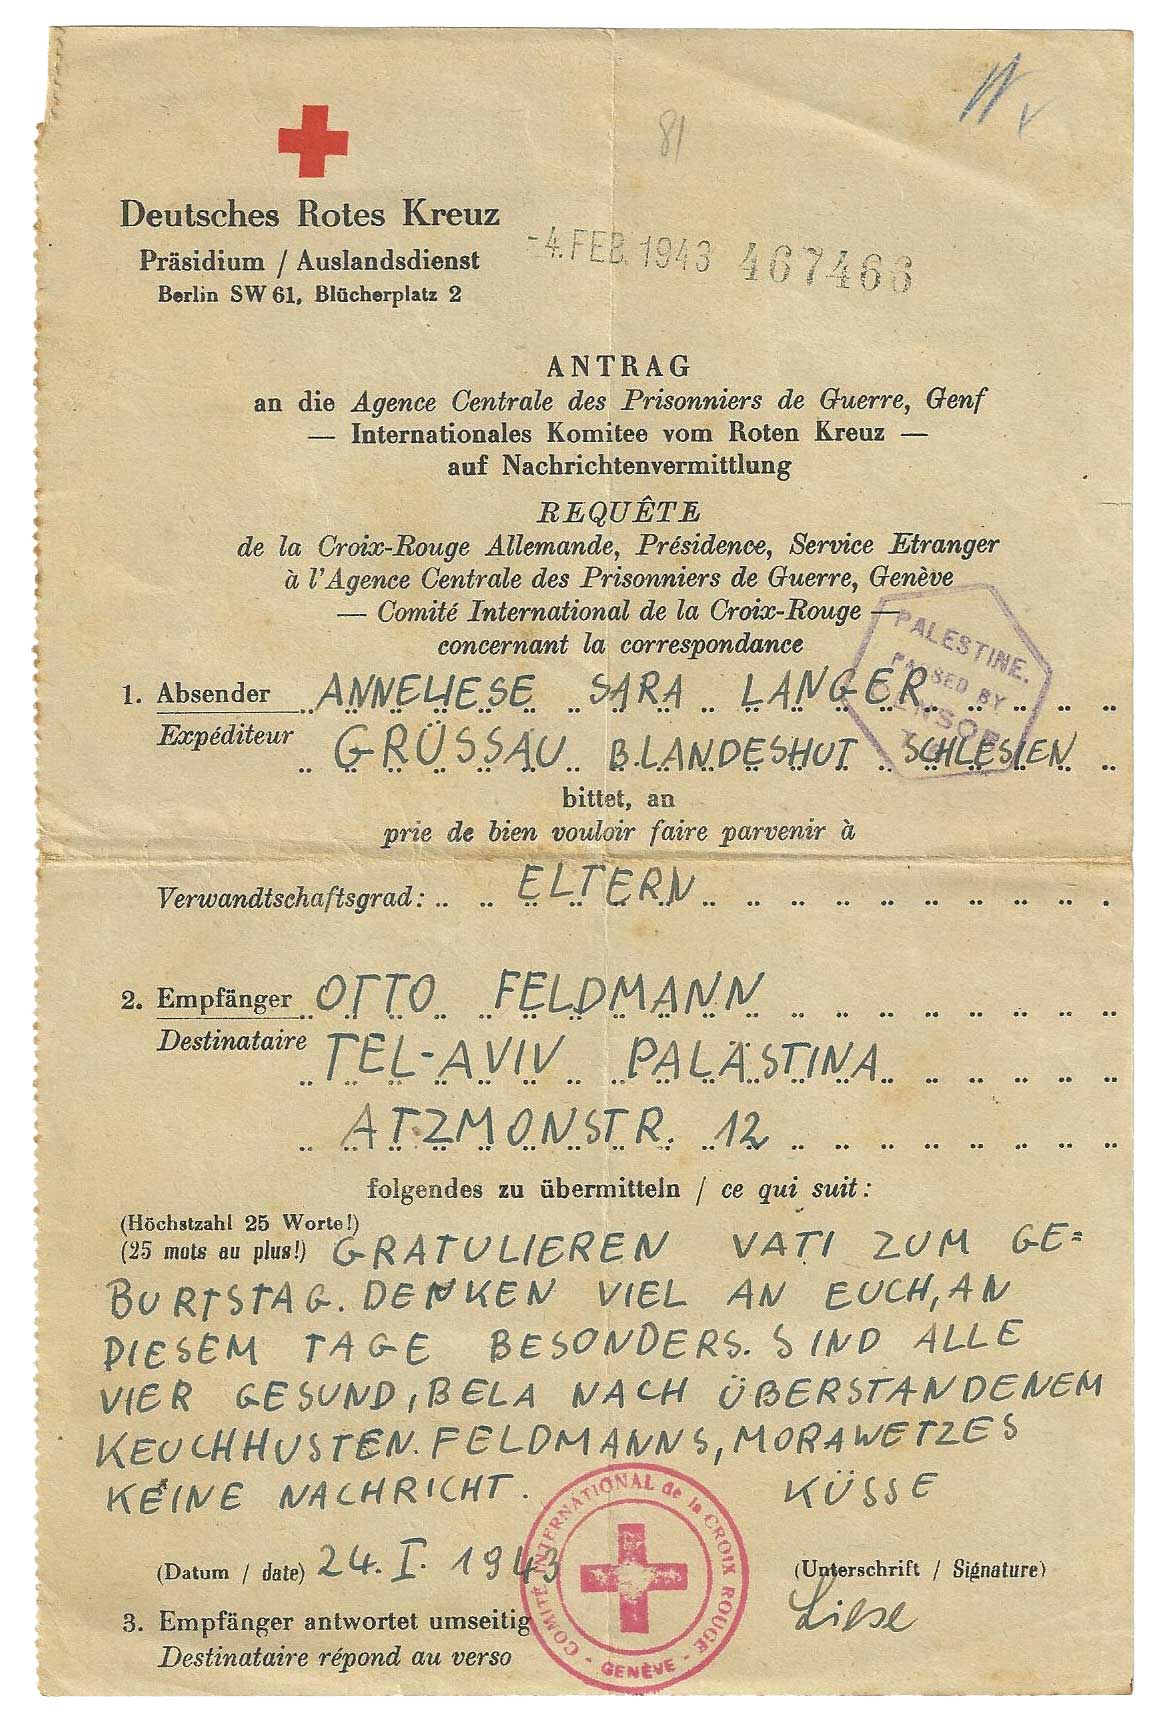 81
Deutsches Rotes Kreuz
Präsidium / Auslandsdienst
Berlin SW 61, Blücherplatz 2
-4. FEB. 1943 467466
ANTRAG
an die Agence Centrale des Prisonniers de Guerre, Genf
— Internationales Komitee vom Roten Kreuz —
auf Nachrichtenvermittlung
REQUÊTE
de la Croix-Rouge Allemande, Présidence, Service Etranger
à l'Agence Centrale des Prisonniers de Guerre, Genève
— Comité International de la Croix-Rouge —
concernant la correspondance
PALESTINE.
PASSED BY
CENSOR
1. Absender ANNELIESE SARA LANGER
Expéditeur GRÜSSAU B. LANDESHUT SCHLESIEN
bittet, an
prie de bien vouloir faire parvenir à
Verwandtschaftsgrad: ELTERN
2. Empfänger OTTO FELDMANN
Destinataire TEL-AVIV PALÄSTINA
ATZMONSTR. 12
folgendes zu übermitteln / ce qui suit:
(Höchstzahl 25 Worte!)
(25 mots au plus!) GRATULIEREN VATI ZUM GE=
BURTSTAG. DENKEN VIEL AN EUCH, AN
DIESEM TAGE BESONDERS. SIND ALLE
VIER GESUND, BELA NACH ÜBERSTANDENEM
KEUCHHUSTEN. FELDMANNS, MORAWETZES
KEINE NACHRICHT. KÜSSE
(Datum / date) 24. I. 1943 (Unterschrift / Signature)
Liese
3. Empfänger antwortet umseitig
Destinataire répond au verso
COMITÉ INTERNATIONAL de la CROIX ROUGE
- GENÈVE -